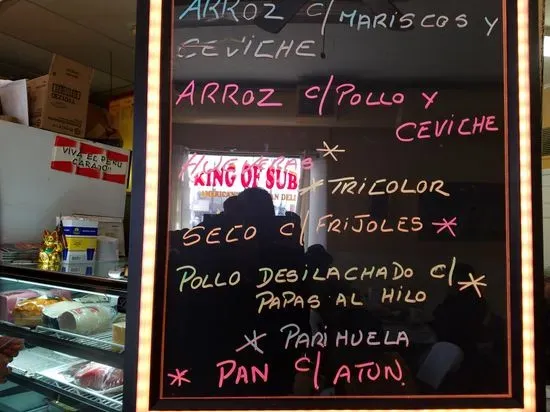 ARROZ c/MARISCOS Y
CEVICHE
ARROZ c/POLLO Y
CEVICHE
HUEVERAS
TRICOLOR
SECO c/FRIJOLES
POLLO DESILACHADO c/
PAPAS AL HILO
PARIHUELA
PAN c/ATON.
VIVA EL PERU
CARAJO!!
KING OF SUB
AMERICAN
AN DELI